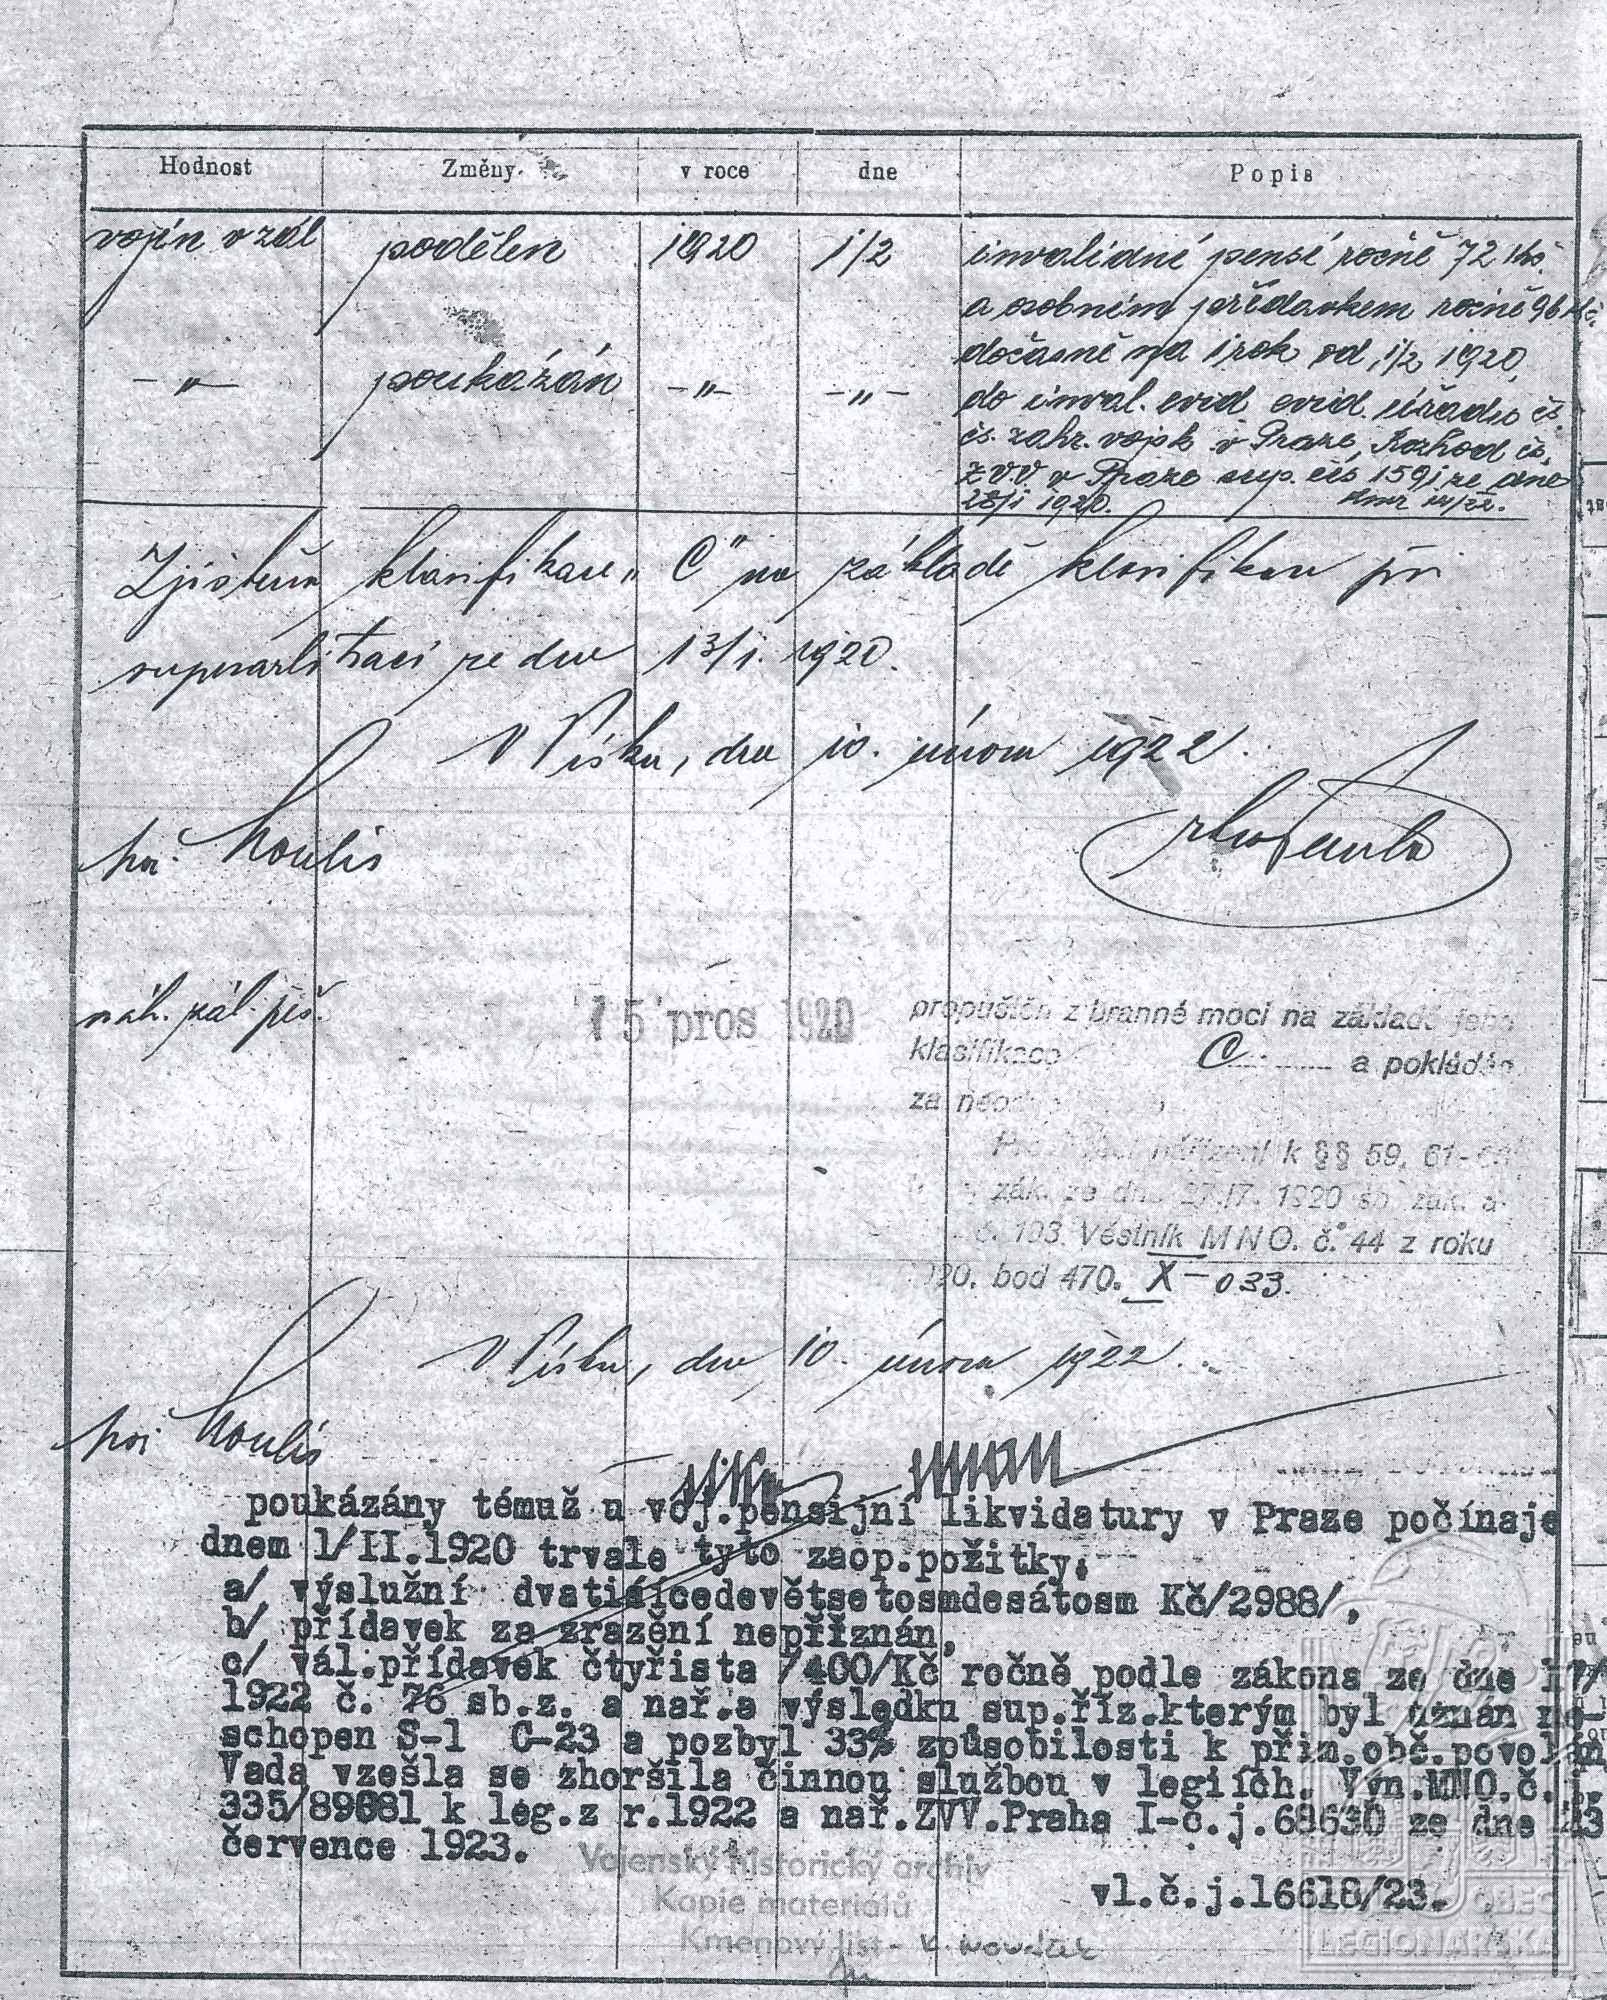 Hodnost Změny. v roce dne Popis
vojín v zál podělen 1920 1/2 invalidné pensé ročně 72 Kč.
a osobním přídavkem ročně 96 Kč.
dočasně na 1 rok od 1/2 1920,
-„- poukázán -„- -„- do inval. evid. evid. úřadu čs.
čs. zahr. vojsk v Praze, Rozhod čs.
Z.V.V. v Praze sup. čís 1591 ze dne
28/I 1920.
Zjištěna klasifikace „C" na základě klasifikace při
superarbitraci ze dne 13/1. 1920.
V Písku, dne 10. února 1922.
Koulis
náh. zál. pěš. 15 pros 1920 propuštěn z branné moci na základě jeho
klasifikace C a pokládán
za
nařízení k §§ 59, 61-
zák. ze dne 1920 sb. zák. a
č. 193. Věstník MNO. č. 44 z roku
920. bod 470. X-033.
V Písku, dne 10. února 1922.
Koulis
poukázány témuž u voj.pensijní likvidatury v Praze počínaje
dnem 1/II.1920 trvale tyto zaop.požitky.
a/ výslužní dvatisícedevětsetosmdesátosm Kč/2988/,
b/ přídavek za zrazění nepřiznán,
c/ vál.přídavek čtyřista /400/Kč ročně podle zákona ze dne 17/
1922 č. 76 sb.z. a nař.a výsledku sup.říz.kterým byl uznán ne-
schopen S-1 C-23 a pozbyl 33% způsobilosti k přím.obč.povolán
Vada vzešla se zhoršila činnou službou v legiích. Vyn.MNO.č.j.
335/89681 k leg.z r.1922 a nař.ZVV.Praha I-č.j.68630 ze dne 23
července 1923.
vl.č.j.16618/23.
Vojenský historický archiv
Kopie materiálů
Kmenový list - V. Nováček
OBEC
LEGIONÁŘSKÁ